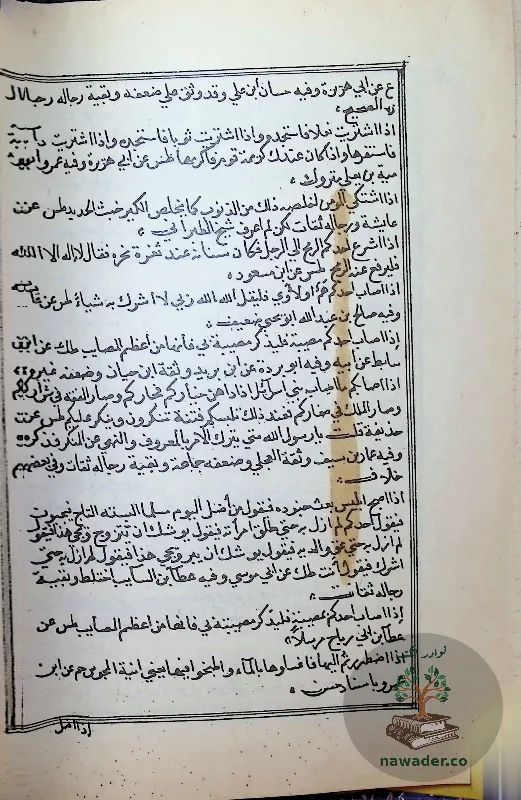 ع عن ابي هريرة وفيه حسان ابن علي وقد وثق علي ضعفه وبقية رجاله رجال
الصحيح
اذا اشتريت نعلا فاستجده واذا اشتريت ثوبا فاستجده واذا اشتريت دابة
فاستفرها واذا كان عندك كريمة قوم فاكرمها طس عن ابي هريرة وفيه
بن يعلى متروك
اذا اشتكى المومن اخلصه ذلك من الذنوب كما يخلص الكير خبث الحديد طس عن
عايشة ورجاله ثقات لكن لم اعرف شيخ الطبراني
اذا اشرع احدكم الرمح الى الرجل فكان سنانه عند ثغرة نحره فقال لا اله الا الله
فليرفع عنه الرمح طس عن ابن مسعود
اذا اصاب احدكم هم او لاوي فليقل الله الله ربي لا اشرك به شياء طس عن
وفيه صالح بن عبد الله ابو يحيى ضعيف
اذا اصاب احدكم مصيبة فليذكر مصيبته بي فانها من أعظم المصايب طك عن ابن
سابط عن ابيه وفيه ابو بردة عن ابن بريد وثقه ابن حبان وضعفه غيره
اذا اصابكم ما اصاب بني اسرائيل اذا داهن خياركم فجاركم وصار الفقه في شراركم
وصار الملك في صغاركم فعند ذلك تلبسكم فتنة تكرون ويكر عليكم طس عن
حذيفة قلت يا رسول الله متى يترك الامر بالمعروف والنهي عن المنكر فذكره
وفيه عمار بن سيف وثقه العجلي وضعفه جماعة وبقية رجاله ثقات وفي بعضهم
خلاف
اذا اصبح ابليس بعث جنوده فيقول من أضل اليوم مسلما البسته التاج فيجيون
فيقول احدكم لم ازل به حتى طلق امرأته فيقول يوشك ان يتزوج ويجي هذا فيقول
لم ازل به حتى عق والديه فيقول يوشك ان يبر ويجي هذا فيقول لم ازل به حتى
اشرك فيقول أنت طك عن ابي موسى وفيه عطا بن السايب اختلط وبقية
رجاله ثقات
إذا اصاب احدكم مصيبة فليذكر مصيبته بي فانها من اعظم المصايب طس عن
عطا بن ابي رباح مرسلا
اذا اضطررتم اليها فاغسلوها بالماء واطبخوا فيها يعني انية المجوس حم عن ابن
عمرو باسناد حسن
اذا اضل
نوادر الكتب
nawader.co